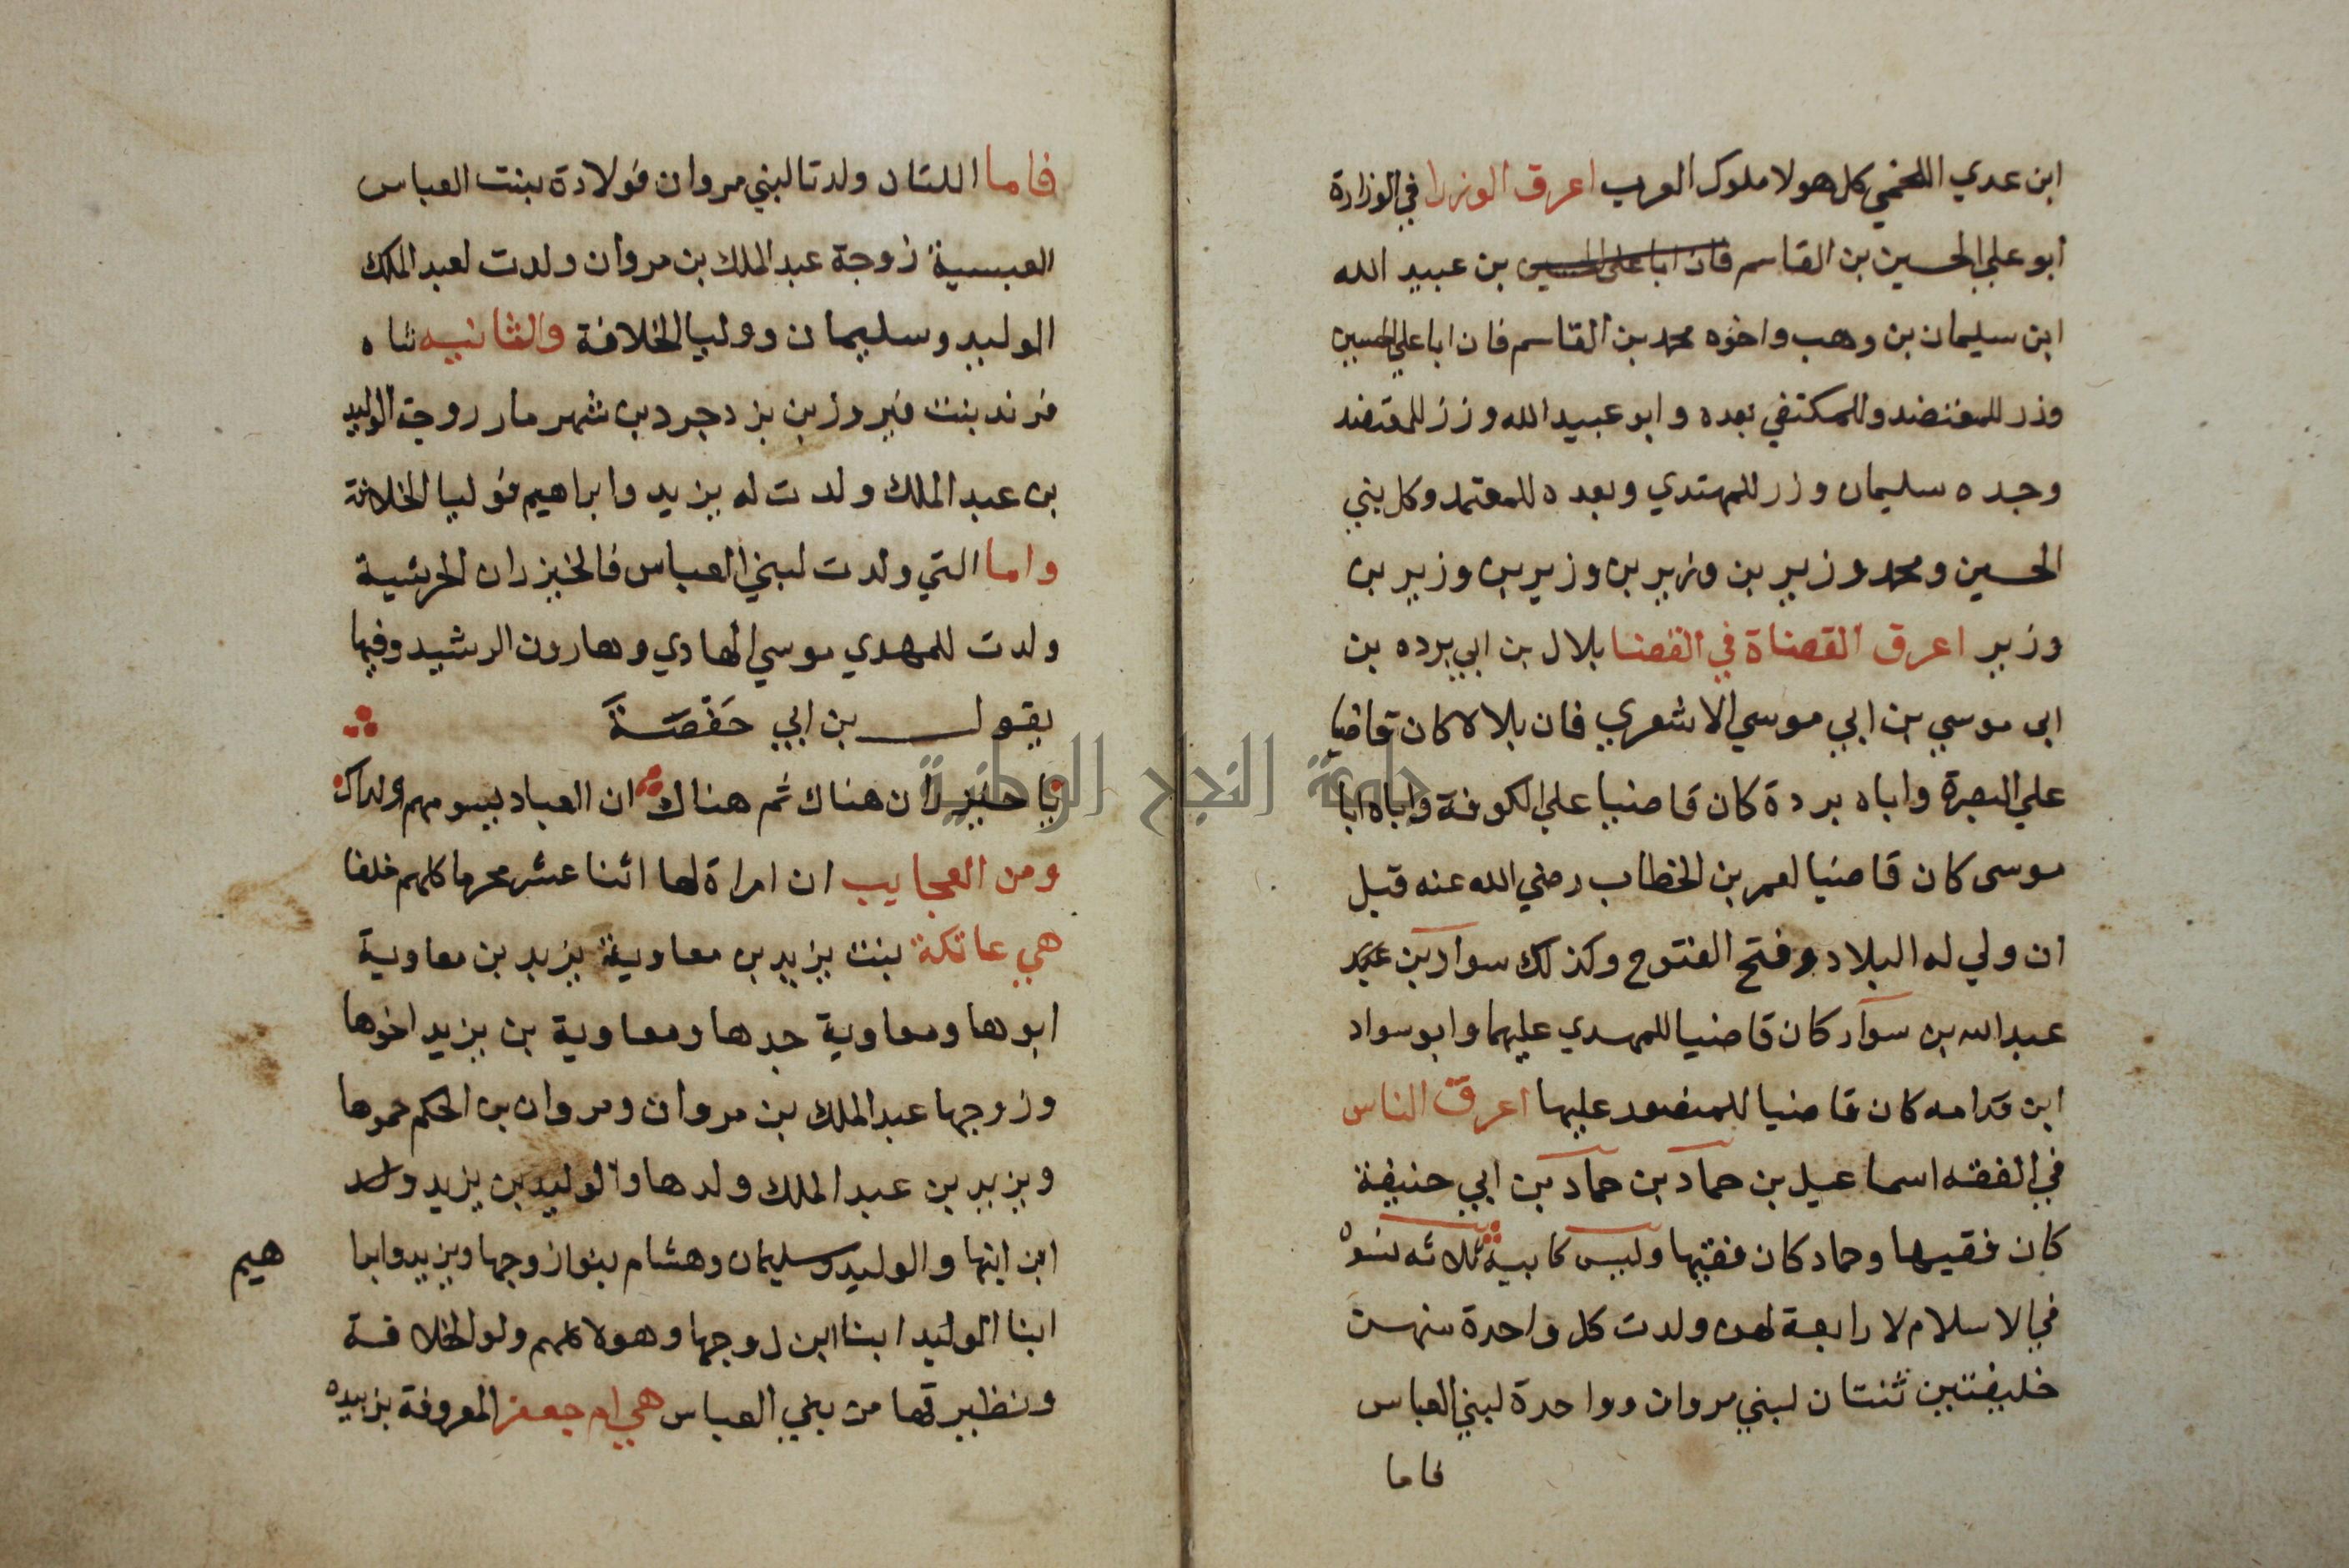 ابن عدي اللخمي كل هولا ملوك العرب اعرق الوزرا في الوزارة
ابو علي الحسين بن القاسم فان ابا علي الحسين بن عبيد الله
ابن سليمان بن وهب واخوه محمد بن القاسم فان ابا علي الحسين
وزر للمعتضد وللمكتفي بعده وابو عبيد الله وزر للمعتضد
وجده سليمان وزر للمهتدي وبعده للمعتمد وكل بني
الحسين ومحمد وزير بن وزير بن وزير بن وزير بن
وزير اعرق القضاة في القضا بلال بن ابي برده بن
ابى موسي بن ابي موسي الاشعري فان بلالا كان قاضيا
علي البصرة واباه بردة كان قاضيا علي الكوفة واباه ابا
موسى كان قاضيا لعمر بن الخطاب رضي الله عنه قبل
ان ولي له البلاد وفتح الفتوح وكذلك سوار بن
عبد الله بن سوار كان قاضيا للمهدي عليهما وابو سواد
ابن قدامه كان قاضيا للمنصور عليها اعرق الناس
في الفقه اسماعيل بن حماد بن حماد بن ابي حنيفة
كان فقيها وحماد كان فقيها وليس كابيه ثلاثه نسوه
في الاسلام لا رابعة لهن ولدت كل واحدة منهن
خليفتين ثنتان لبني مروان وواحدة لبني العباس
فاما
فاما اللتان ولدتا لبني مروان فولادة بنت العباس
العبسية زوجة عبد الملك بن مروان ولدت لعبد الملك
الوليد وسليمان ووليا الخلافة والثانيه شاه
فرند بنت فيروز بن يزدجرد بن شهرمار زوجة الوليد
بن عبد الملك ولدت له يزيد وابراهيم فوليا الخلافة
واما التي ولدت لبني العباس فالخيزران الحرشية
ولدت للمهدي موسي الهادي وهارون الرشيد وفيها
يقول بن ابي حَفْصَةَ
يا خيزران هناك ثم هناك ان العباد يسومهم ولداك
ومن العجايب ان امراة لها اثنا عشر محرما كلهم خلفا
هي عاتكة بنت يزيد بن معاوية يزيد بن معاوية
ابوها ومعاوية جدها ومعاوية بن يزيد اخوها
وزوجها عبد الملك بن مروان ومروان بن الحكم حموها
ويزيد بن عبد الملك ولدها والوليد بن يزيد ولد
ابن ابنها والوليد وسليمان وهشام بنوا زوجها ويزيد وابرا
هيم
ابنا الوليد ابنا ابن زوجها وهولا كلهم ولو الخلافة
ونظيرتها من بني العباس هي ام جعفر المعروفة بزبيده
جامعة النجاح الوطنية